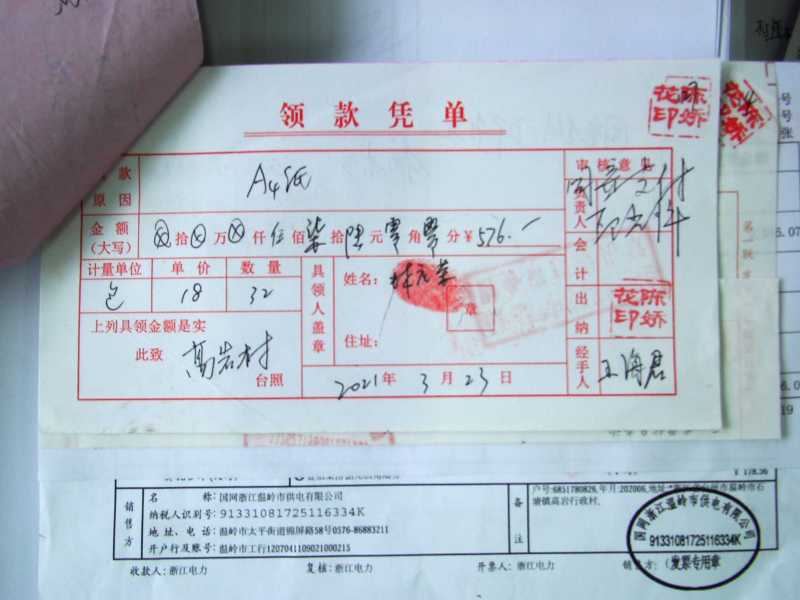 领款凭单
陈娇
花印
款
原因
A4纸
审核意见
同意支付
负责人
金额
(大写)
⊗拾⊗万⊗仟伍佰柒拾陆元零角零分¥576.-
计量单位
单价
数量
包
18
32
具领人盖章
姓名:
章
住址:
会计
出纳
陈娇
花印
经手人
王海君
上列具领金额是实
此致
高岩村
台照
2021年3月23日
号
号
张
第一联
6.07
¥ 178.56
销售方
名称:国网浙江温岭市供电有限公司
纳税人识别号:91331081725116334K
地址、电话:温岭市太平街道锦屏路58号0576-86883211
开户行及账号:温岭市工行1207041109021000215
备注
户号:6851780826,年月:202006,地址:
塘镇高岩行政村.
国网浙江温岭市供电有限公司
91331081725116334K
发票专用章
收款人:浙江电力
复核:浙江电力
开票人:浙江电力
销售方:(